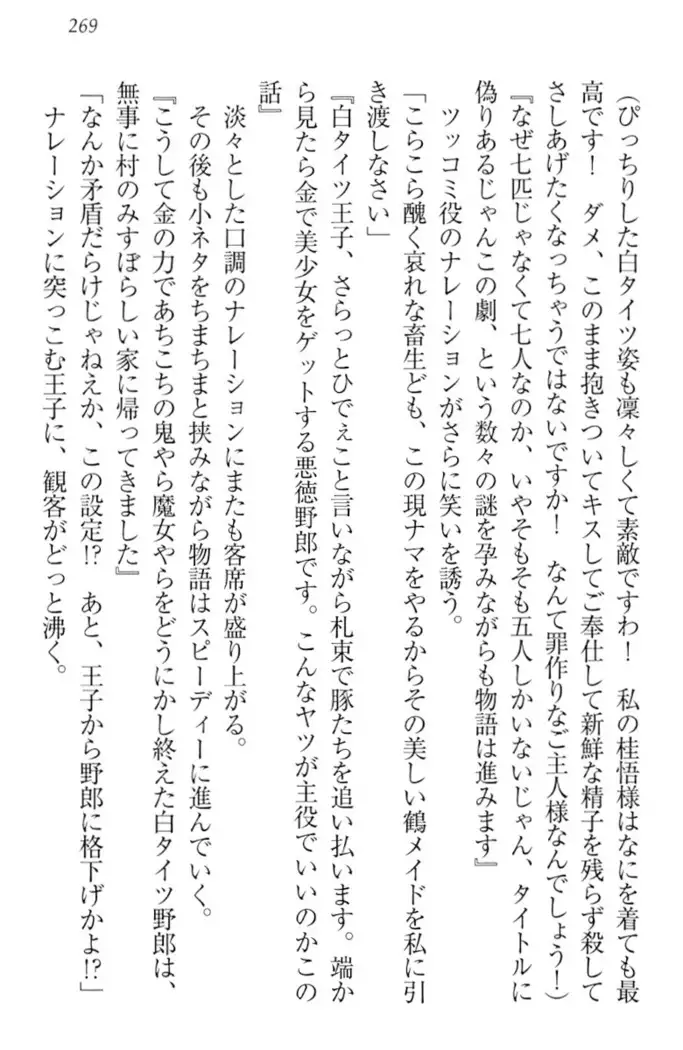 269
(ぴっちりした白タイツ姿も凜々しくて素敵ですわ！　私の桂悟様はなにを着ても最
高です！　ダメ、このまま抱きついてキスしてご奉仕して新鮮な精子を残らず殺して
さしあげたくなっちゃうではないですか！　なんて罪作りなご主人様なんでしょう！)
『なぜ七匹じゃなくて七人なのか、いやそもそも五人しかいないじゃん、タイトルに
偽りあるじゃんこの劇、という数々の謎を孕みながらも物語は進みます』
　ツッコミ役のナレーションがさらに笑いを誘う。
「こらこら醜く哀れな畜生ども、この現ナマをやるからその美しい鶴メイドを私に引
き渡しなさい」
『白タイツ王子、さらっとひでぇこと言いながら札束で豚たちを追い払います。端か
ら見たら金で美少女をゲットする悪徳野郎です。こんなヤツが主役でいいのかこの
話』
　淡々とした口調のナレーションにまたも客席が盛り上がる。
　その後も小ネタをちまちまと挟みながら物語はスピーディーに進んでいく。
『こうして金の力であちこちの鬼やら魔女やらをどうにかし終えた白タイツ野郎は、
無事に村のみすぼらしい家に帰ってきました』
「なんか矛盾だらけじゃねえか、この設定!?　あと、王子から野郎に格下げかよ!?」
　ナレーションに突っこむ王子に、観客がどっと沸く。